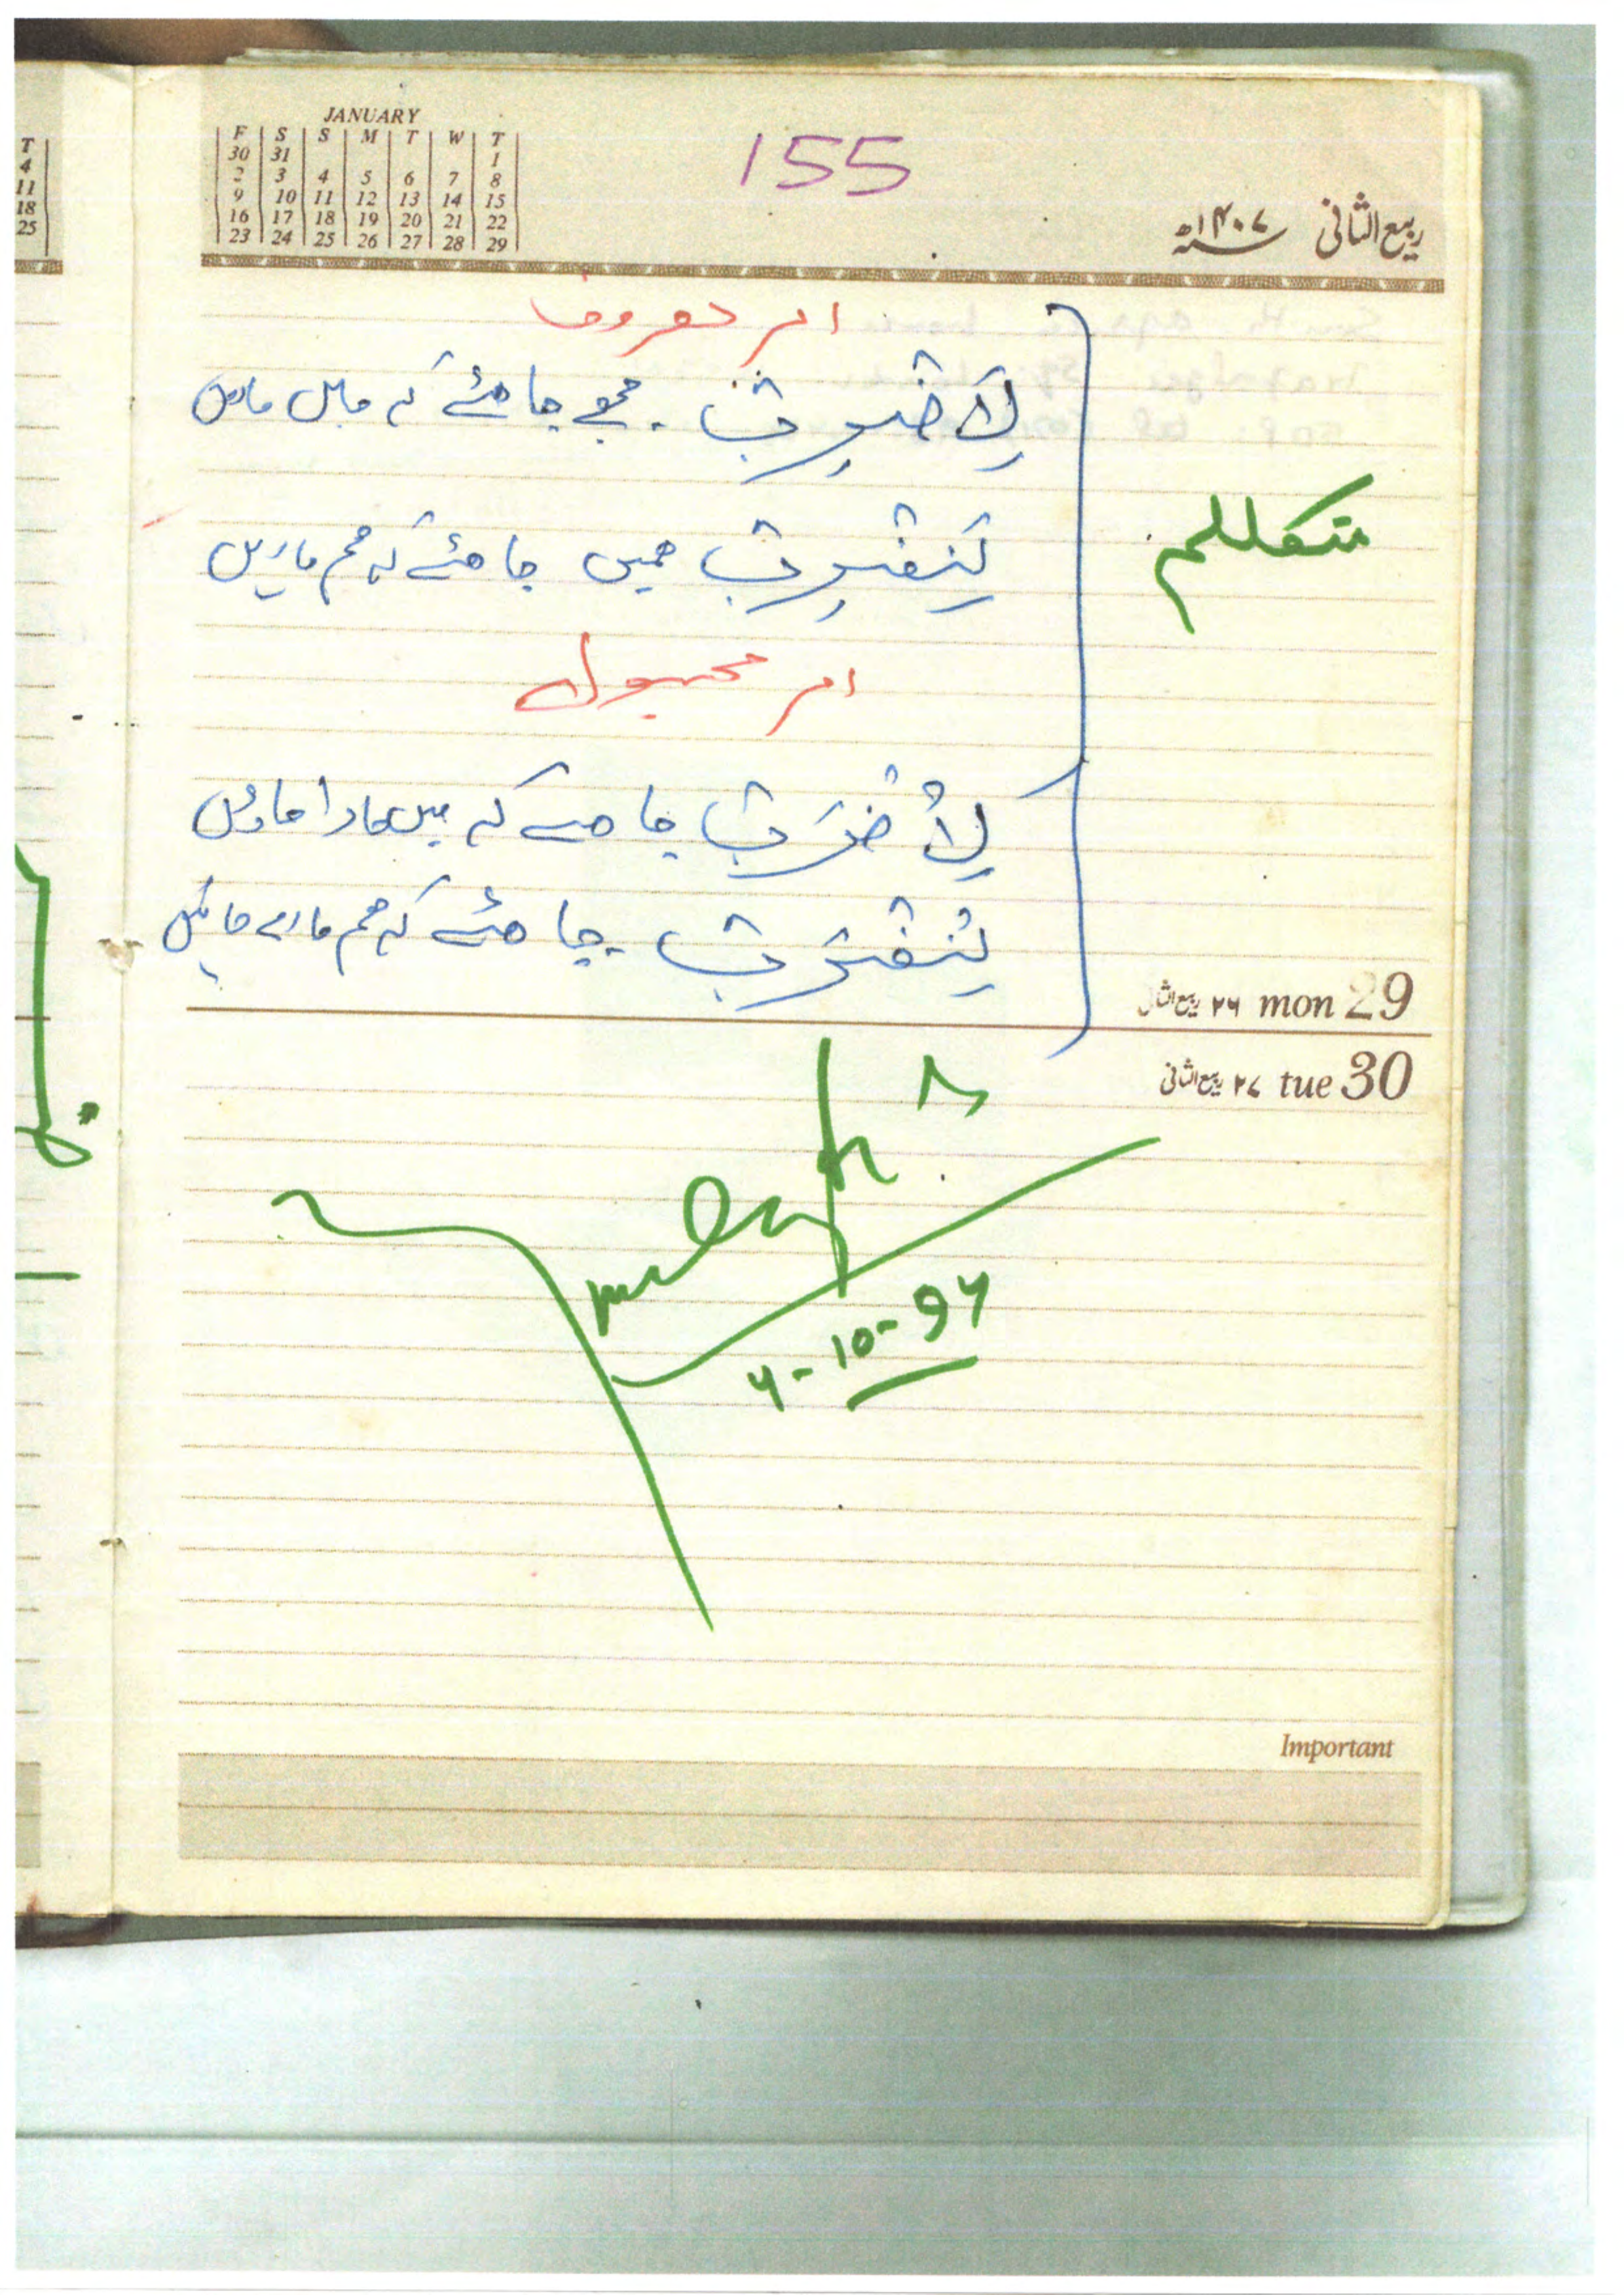 JANUARY
F S S M T W T
30 31 1
2 3 4 5 6 7 8
9 10 11 12 13 14 15
16 17 18 19 20 21 22
23 24 25 26 27 28 29
155
ربیع الثانی ۱۴۰۷ھ
T
4
11
18
25
امر معروف
لِاَضْرِبْ ۔ مجھے چاہئے کہ ماروں
متکلم
لِنَضْرِبْ ہمیں چاہئے کہ ہم ماریں
امر مجہول
لِاُضْرَبْ چاہئے کہ میں مارا جاؤں
لِنُضْرَبْ چاہئے کہ ہم مارے جائیں
۲۶ ربیع الثانی mon 29
۲۷ ربیع الثانی tue 30
Important